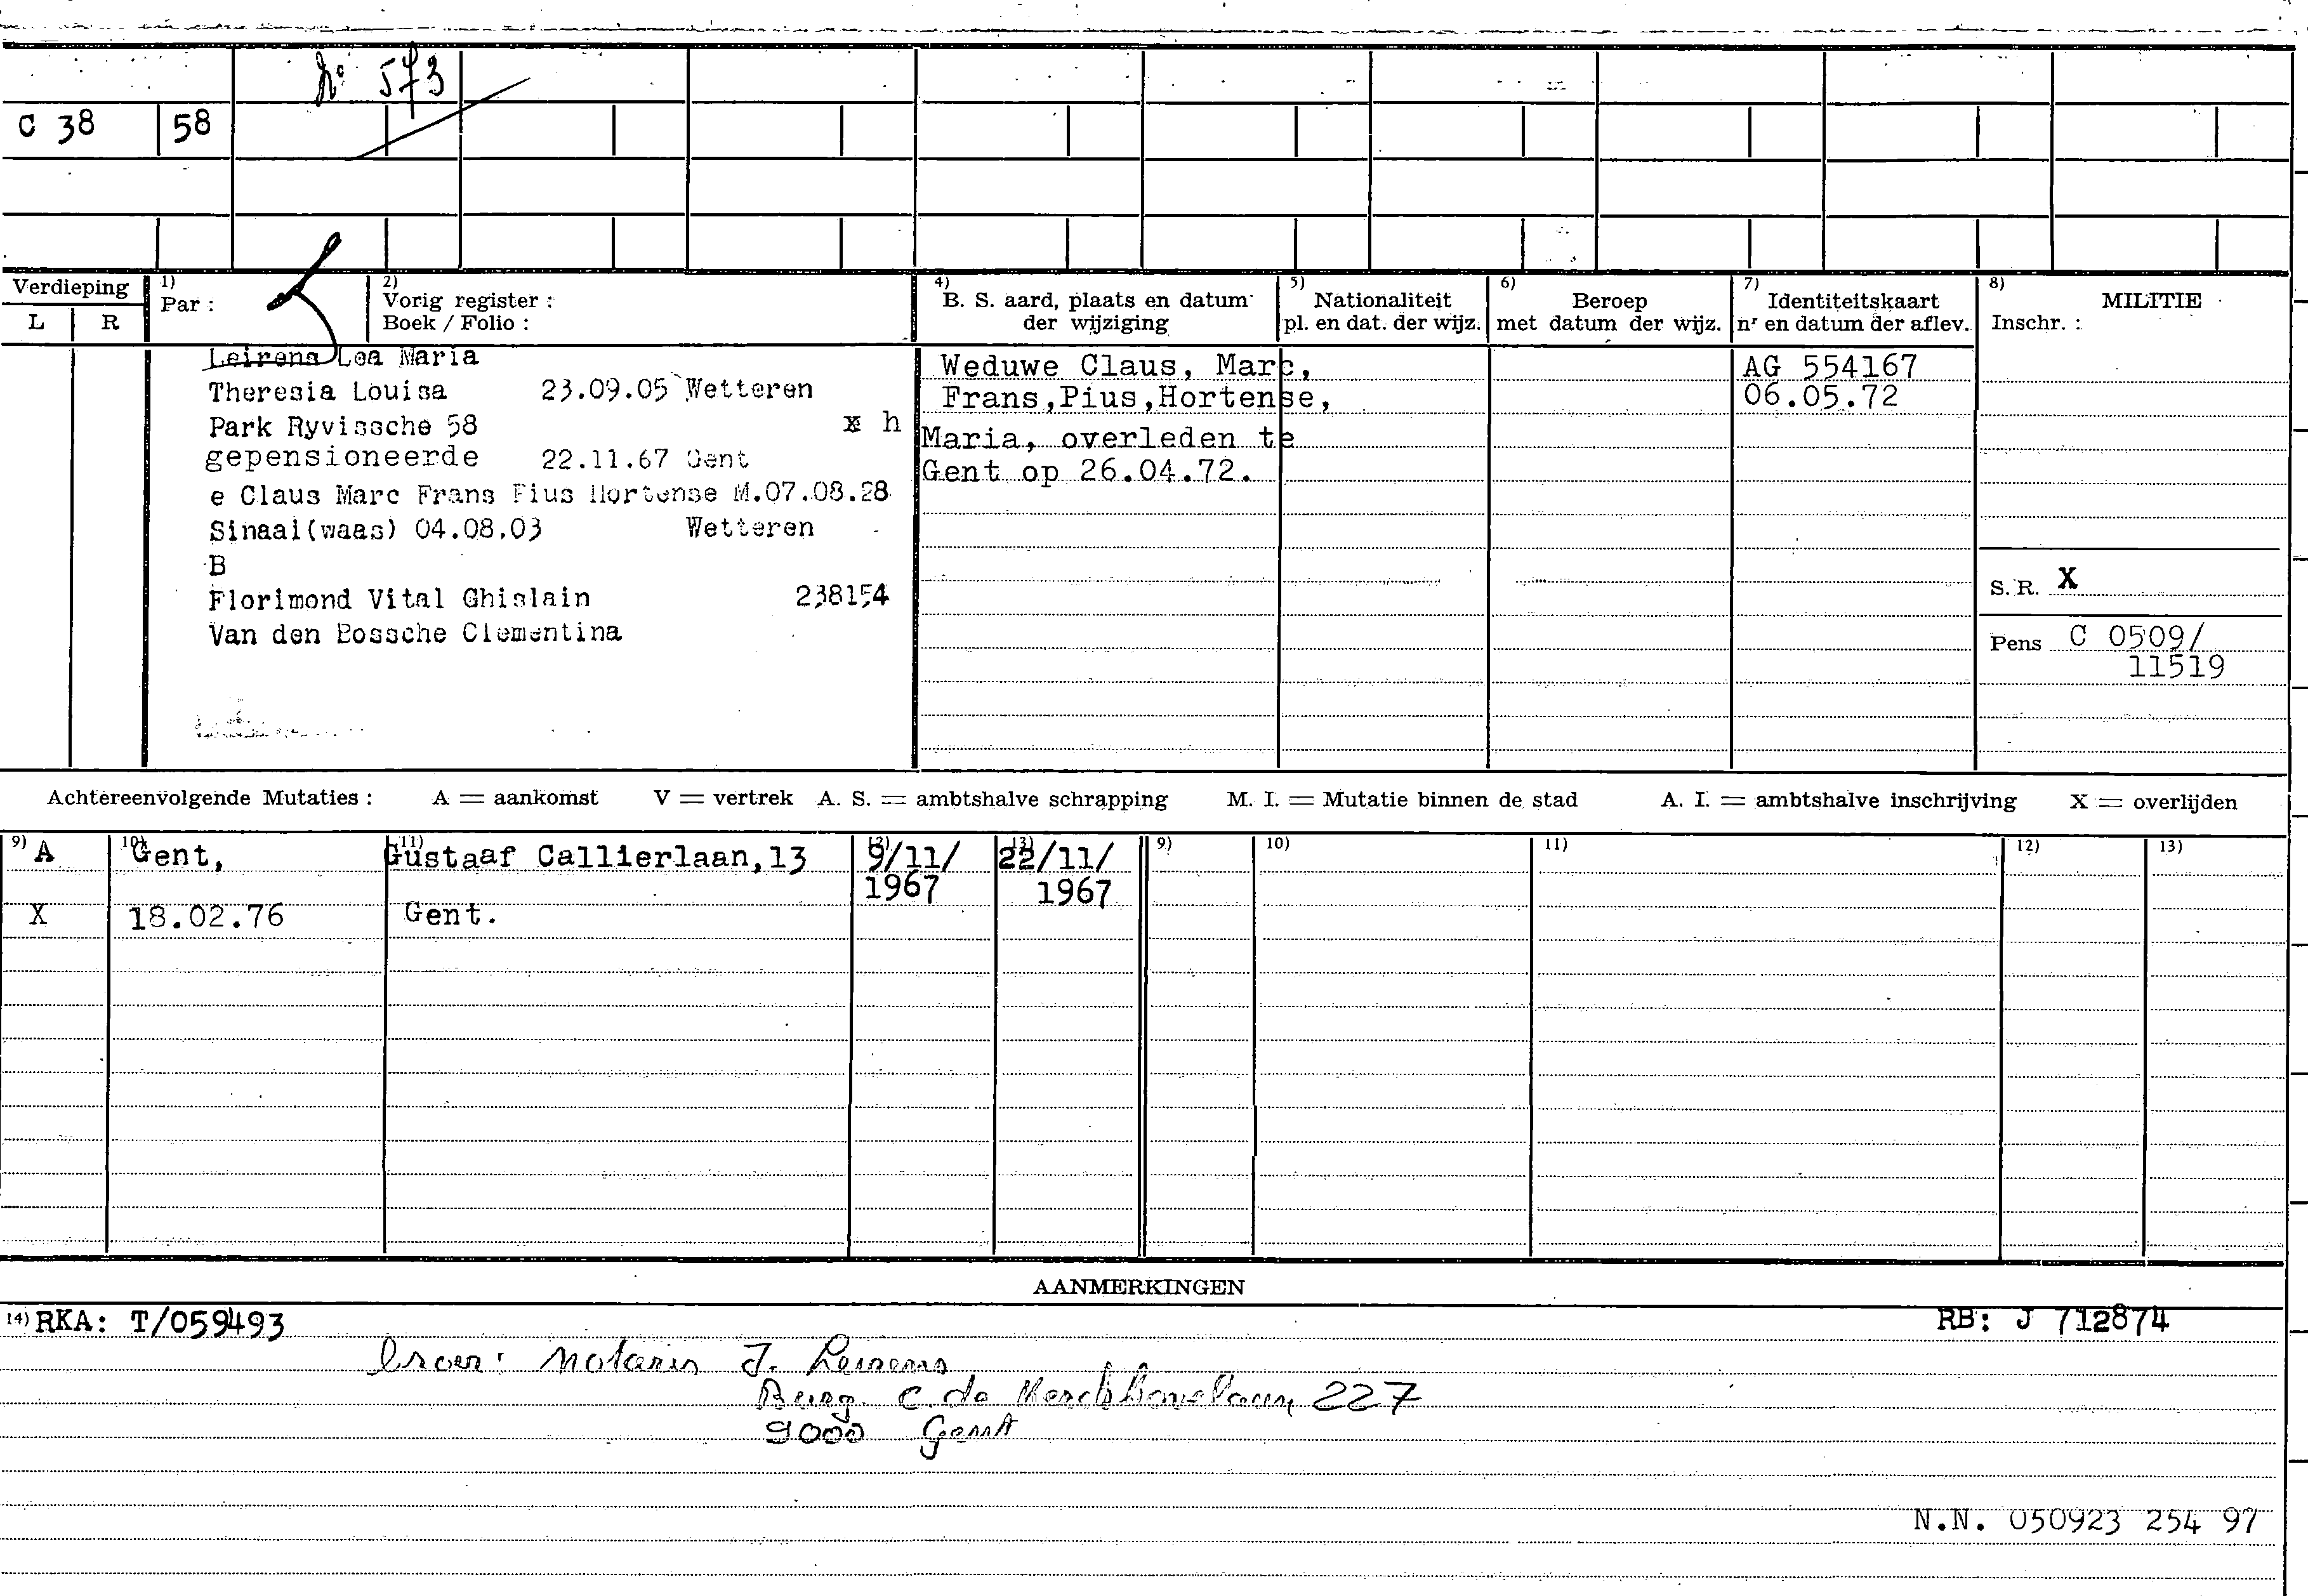 No 573
C 38 58
Verdieping
L R
1) Par :
2) Vorig register :
Boek / Folio :
4) B. S. aard, plaats en datum
der wijziging
5) Nationaliteit
pl. en dat. der wijz.
6) Beroep
met datum der wijz.
7) Identiteitskaart
nr en datum der aflev.
8) MILITIE
Inschr. :
Leirens Lea Maria
Theresia Louisa 23.09.05 Wetteren
Park Ryvissche 58 x h
gepensioneerde 22.11.67 Gent
e Claus Marc Frans Pius Hortense M.07.08.28
Sinaai(waas) 04.08.03 Wetteren
B
Florimond Vital Ghislain 238154
Van den Bossche Clementina
Weduwe Claus, Marc,
Frans,Pius,Hortense,
Maria, overleden te
Gent op 26.04.72.
AG 554167
06.05.72
S. R. X
Pens C 0509/
11519
Achtereenvolgende Mutaties : A = aankomst V = vertrek A. S. = ambtshalve schrapping M. I. = Mutatie binnen de stad A. I. = ambtshalve inschrijving X = overlijden
9) 10) 11) 12) 13) 9) 10) 11) 12) 13)
A Gent, Gustaaf Callierlaan,13 9/11/ 22/11/
1967 1967
X 18.02.76 Gent.
AANMERKINGEN
14) RKA: T/059493 RB: J 712874
notaris J. Leirens
Burg. C. de Kerchovelaan 227
9000 Gent
N.N. 050923 254 97